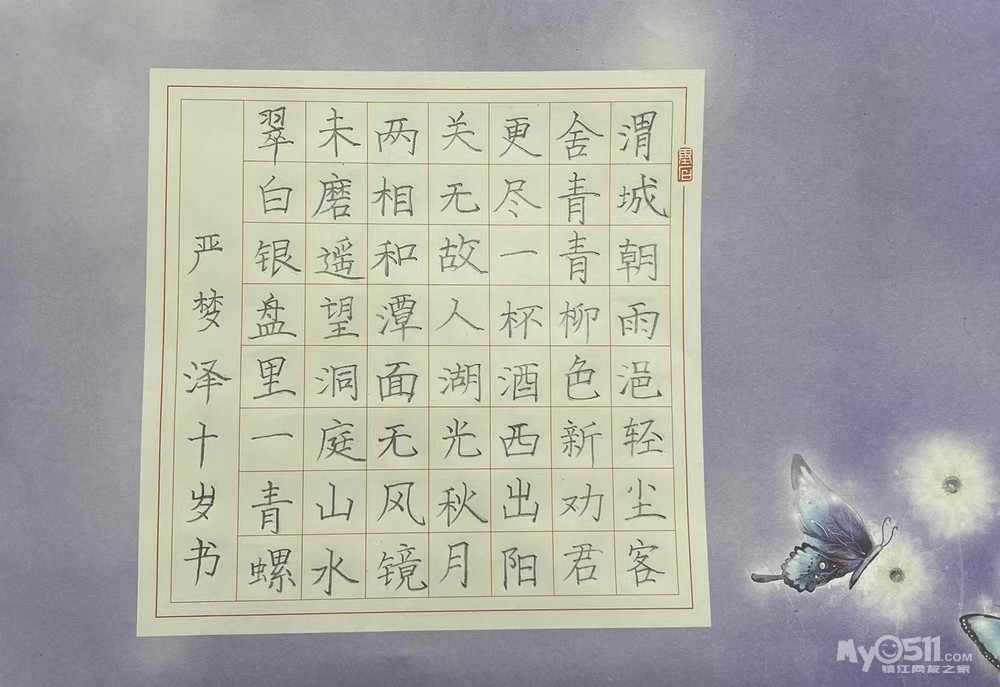 渭城朝雨浥轻尘客
舍青青柳色新劝君
更尽一杯酒西出阳
关无故人湖光秋月
两相和潭面无风镜
未磨遥望洞庭山水
翠白银盘里一青螺
严梦泽十岁书
My0511.COM
镇江网友之家